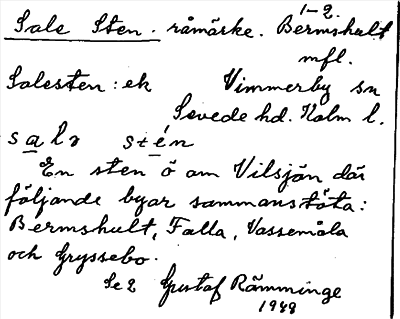 Sale Sten. råmärke. Bermshult 1-2.
mfl.
Salesten : ek Vimmerby sn
Sevede hd. Kalm l.
sala stén
En sten ö om Vilsjön där
följande byar sammanstöta:
Bermshult, Falla, Vassemåla
och Gryssebo.
Se 2 Gustaf Rämminge
1949